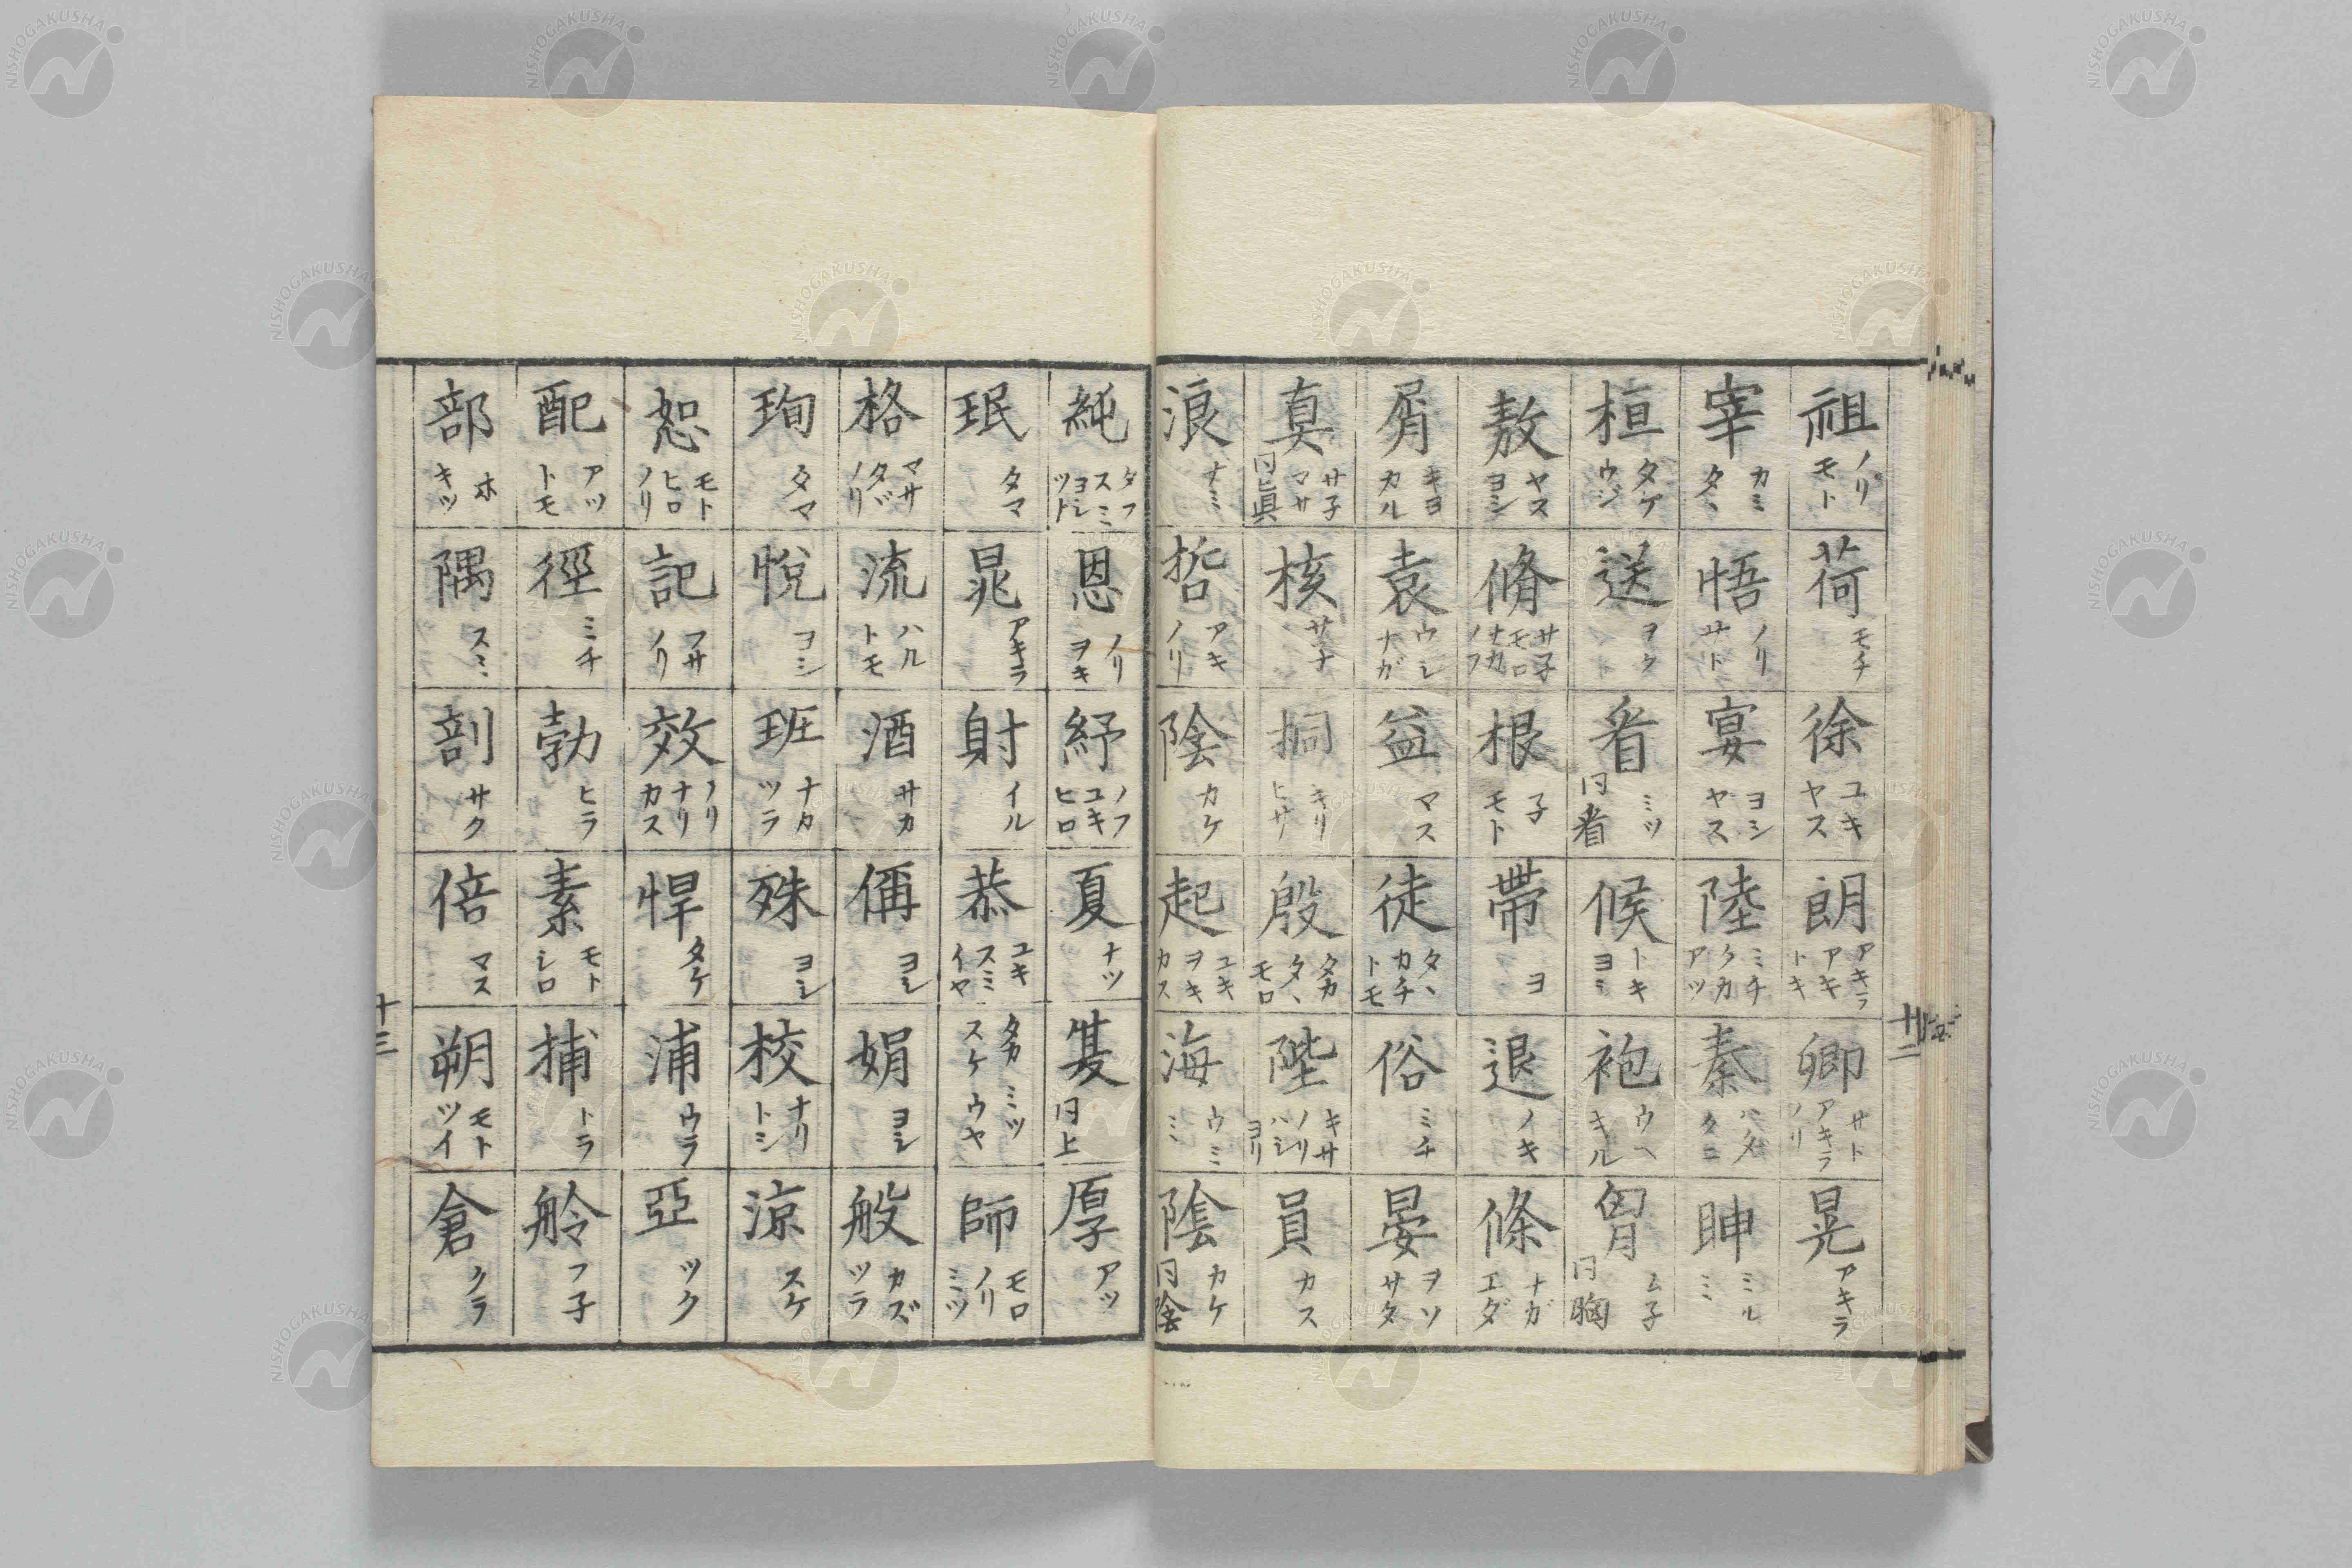 祖 ノリ モト 荷 モチ 徐 ユキ ヤス 朗 アキラ アキ トキ 卿 サト アキラ ノリ 晃 アキラ
宰 カミ タヽ 悟 ノリ サト 宴 ヨシ ヤス 陸 ミチ クカ アツ 秦 ハダ タニ 眒 ミル ミ
桓 タケ ウジ 送 ヲク 着 ミツ 同 候 トキ ヨミ 袍 ウヘ キル ムネ 同胸
敖 ヤス ヨシ 脩 サ子 モロ ナカ ノフ 根 子 モト 帶 ヨ 退 ノキ 條 ナガ エダ
屑 キヨ カル 袁 ウシ ナガ 益 マス 徒 タヽ カチ トモ 俗 ミチ 晏 ヲソ サタ
真 サ子 マサ 同眞 核 サナ 桐 キリ ヒサ 殷 タカ タヽ モロ 陛 キサ ノリ ハシ ヨリ 員 カス
浪 ナミ 哲 アキ ノリ 陰 カケ 起 ユキ ヲキ カス 海 ウミ ミ 隂 カケ 同陰
十二
純 タフ スミ ヨシ ツト 恩 ノリ ヲキ 紓 ノフ ユキ ヒロ 夏 ナツ 同上 厚 アツ
珉 タマ 晁 アキラ 射 イル 恭 ユキ スミ イヤ タカ スケ ミツ ウヤ 師 モロ ノリ ミツ
格 マサ タヾ ノリ 流 ハル トモ 酒 サカ 偁 ヨシ 娟 ヨシ 般 カズ ツラ
珣 タマ 悅 ヨシ 班 ナカ ツラ 殊 ヨシ 校 ナリ トシ 涼 スケ
恕 モト ヒロ ノリ 記 フサ ノリ 效 ノリ ナリ カス 悍 タケ 浦 ウラ 亞 ツク
配 アツ トモ 徑 ミチ 勃 ヒラ 素 モト シロ 捕 トラ 舲 フ子
部 ホ キツ 隅 スミ 剖 サク 倍 マス 朔 モト ツイ 倉 クラ
十三
NISHOGAKUSHA